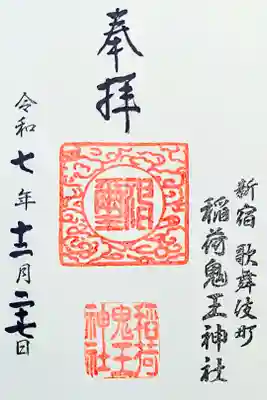 新宿歌舞伎町
稲荷鬼王神社
奉拝
稲荷
鬼王
神社
令和七年十二月二十七日